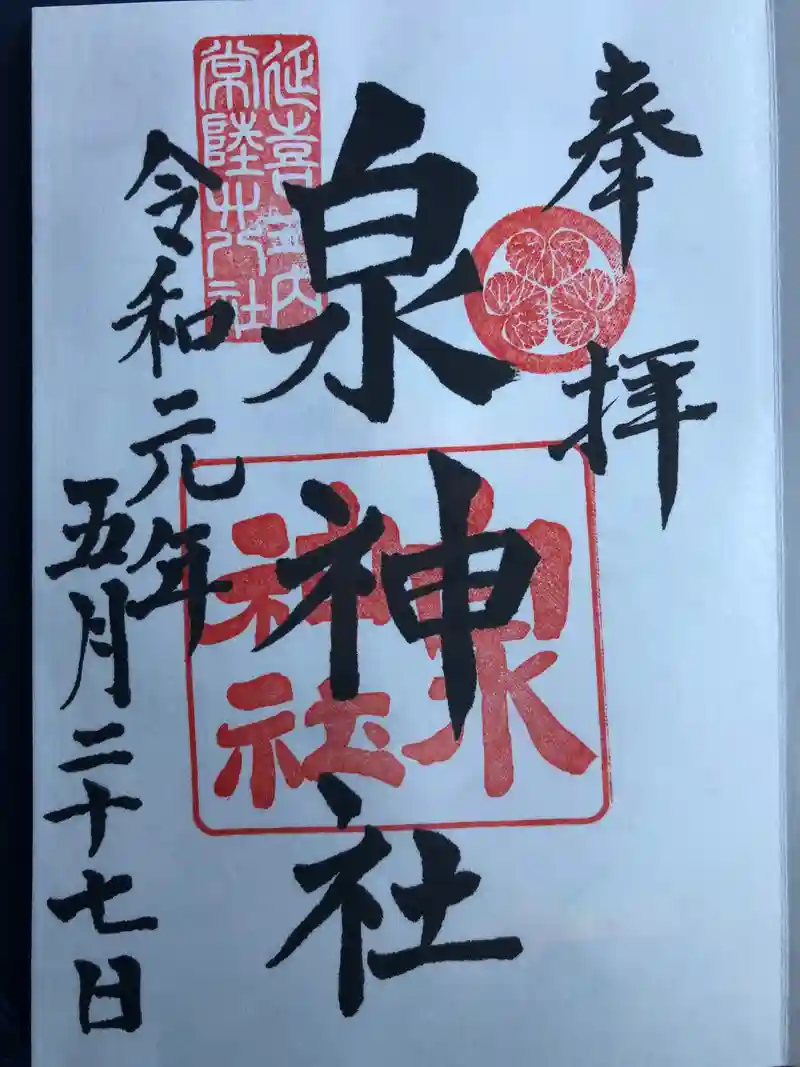 奉拝
泉神社
泉
神社
延喜式内
常陸廿八社
令和元年
五月二十七日